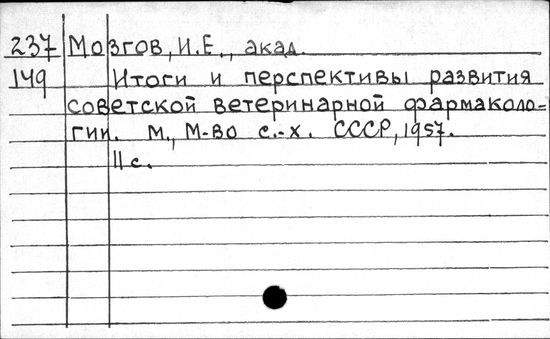 237 Мозгов, И.Е., акад.
149 Итоги и перспективы развития
советской ветеринарной фармаколо-
гии. М., М-во с.-х. СССР, 1957.
11 с.